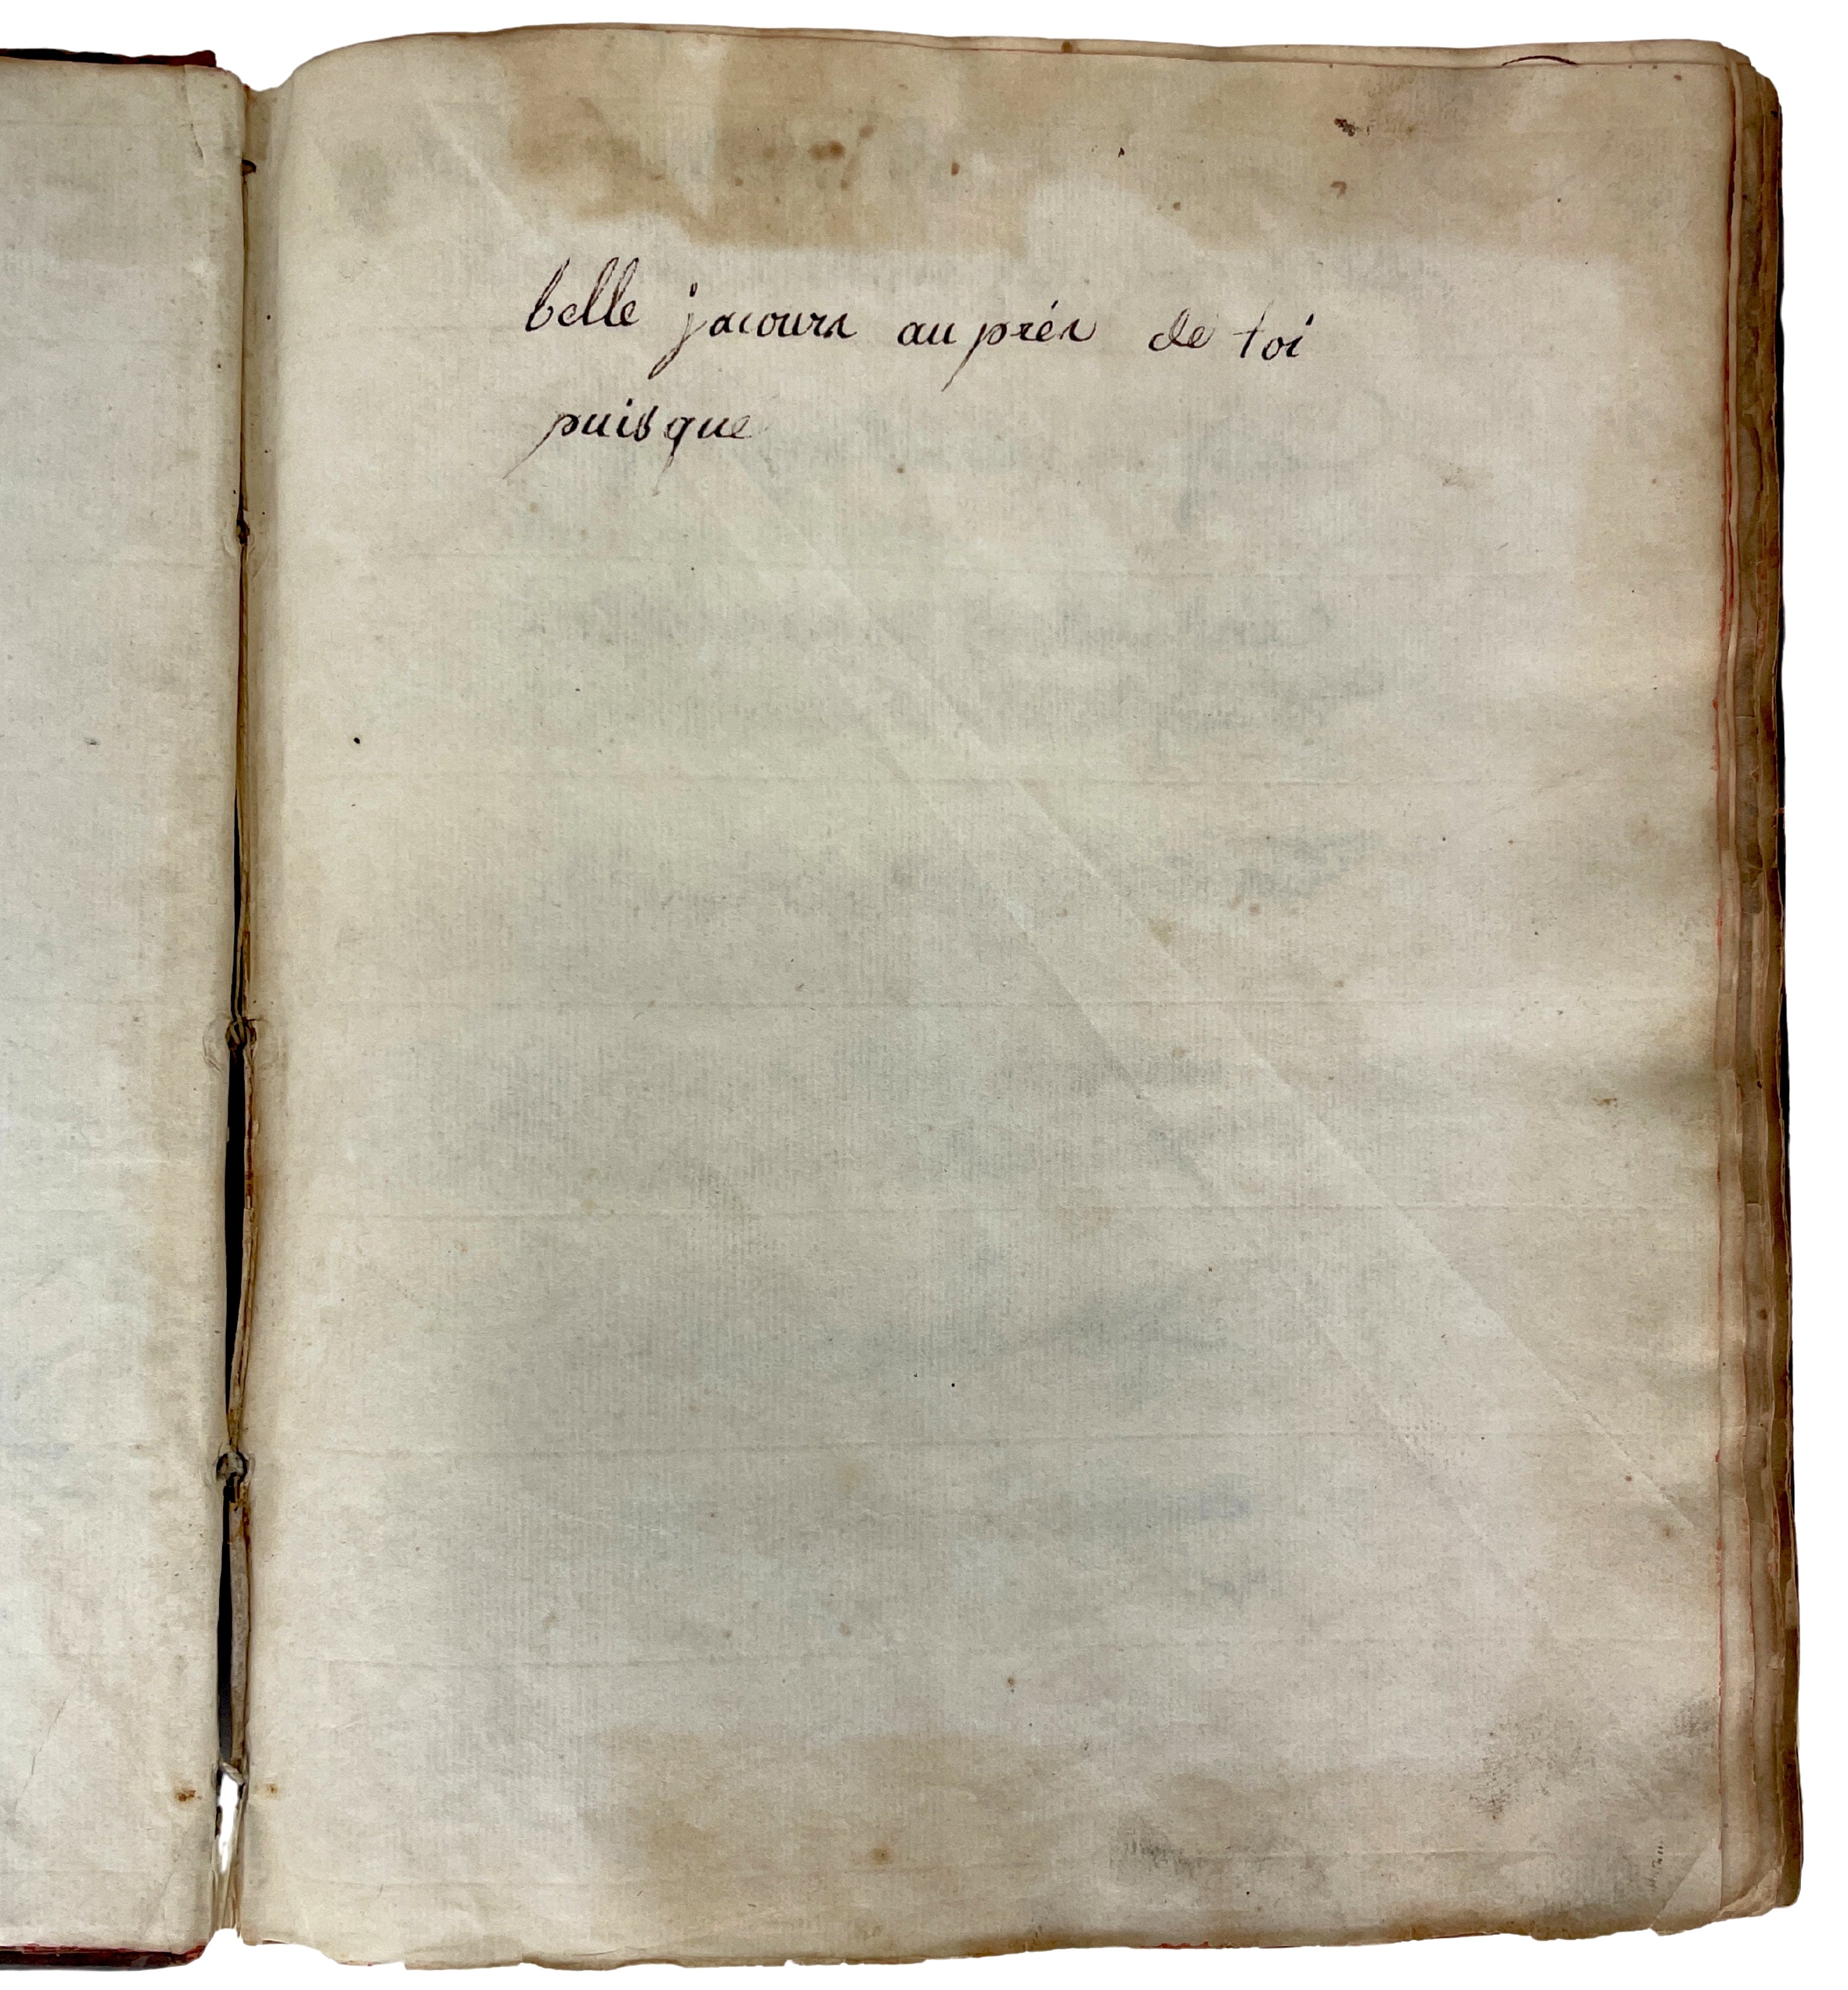 belle jacours auprés de toi
puisque